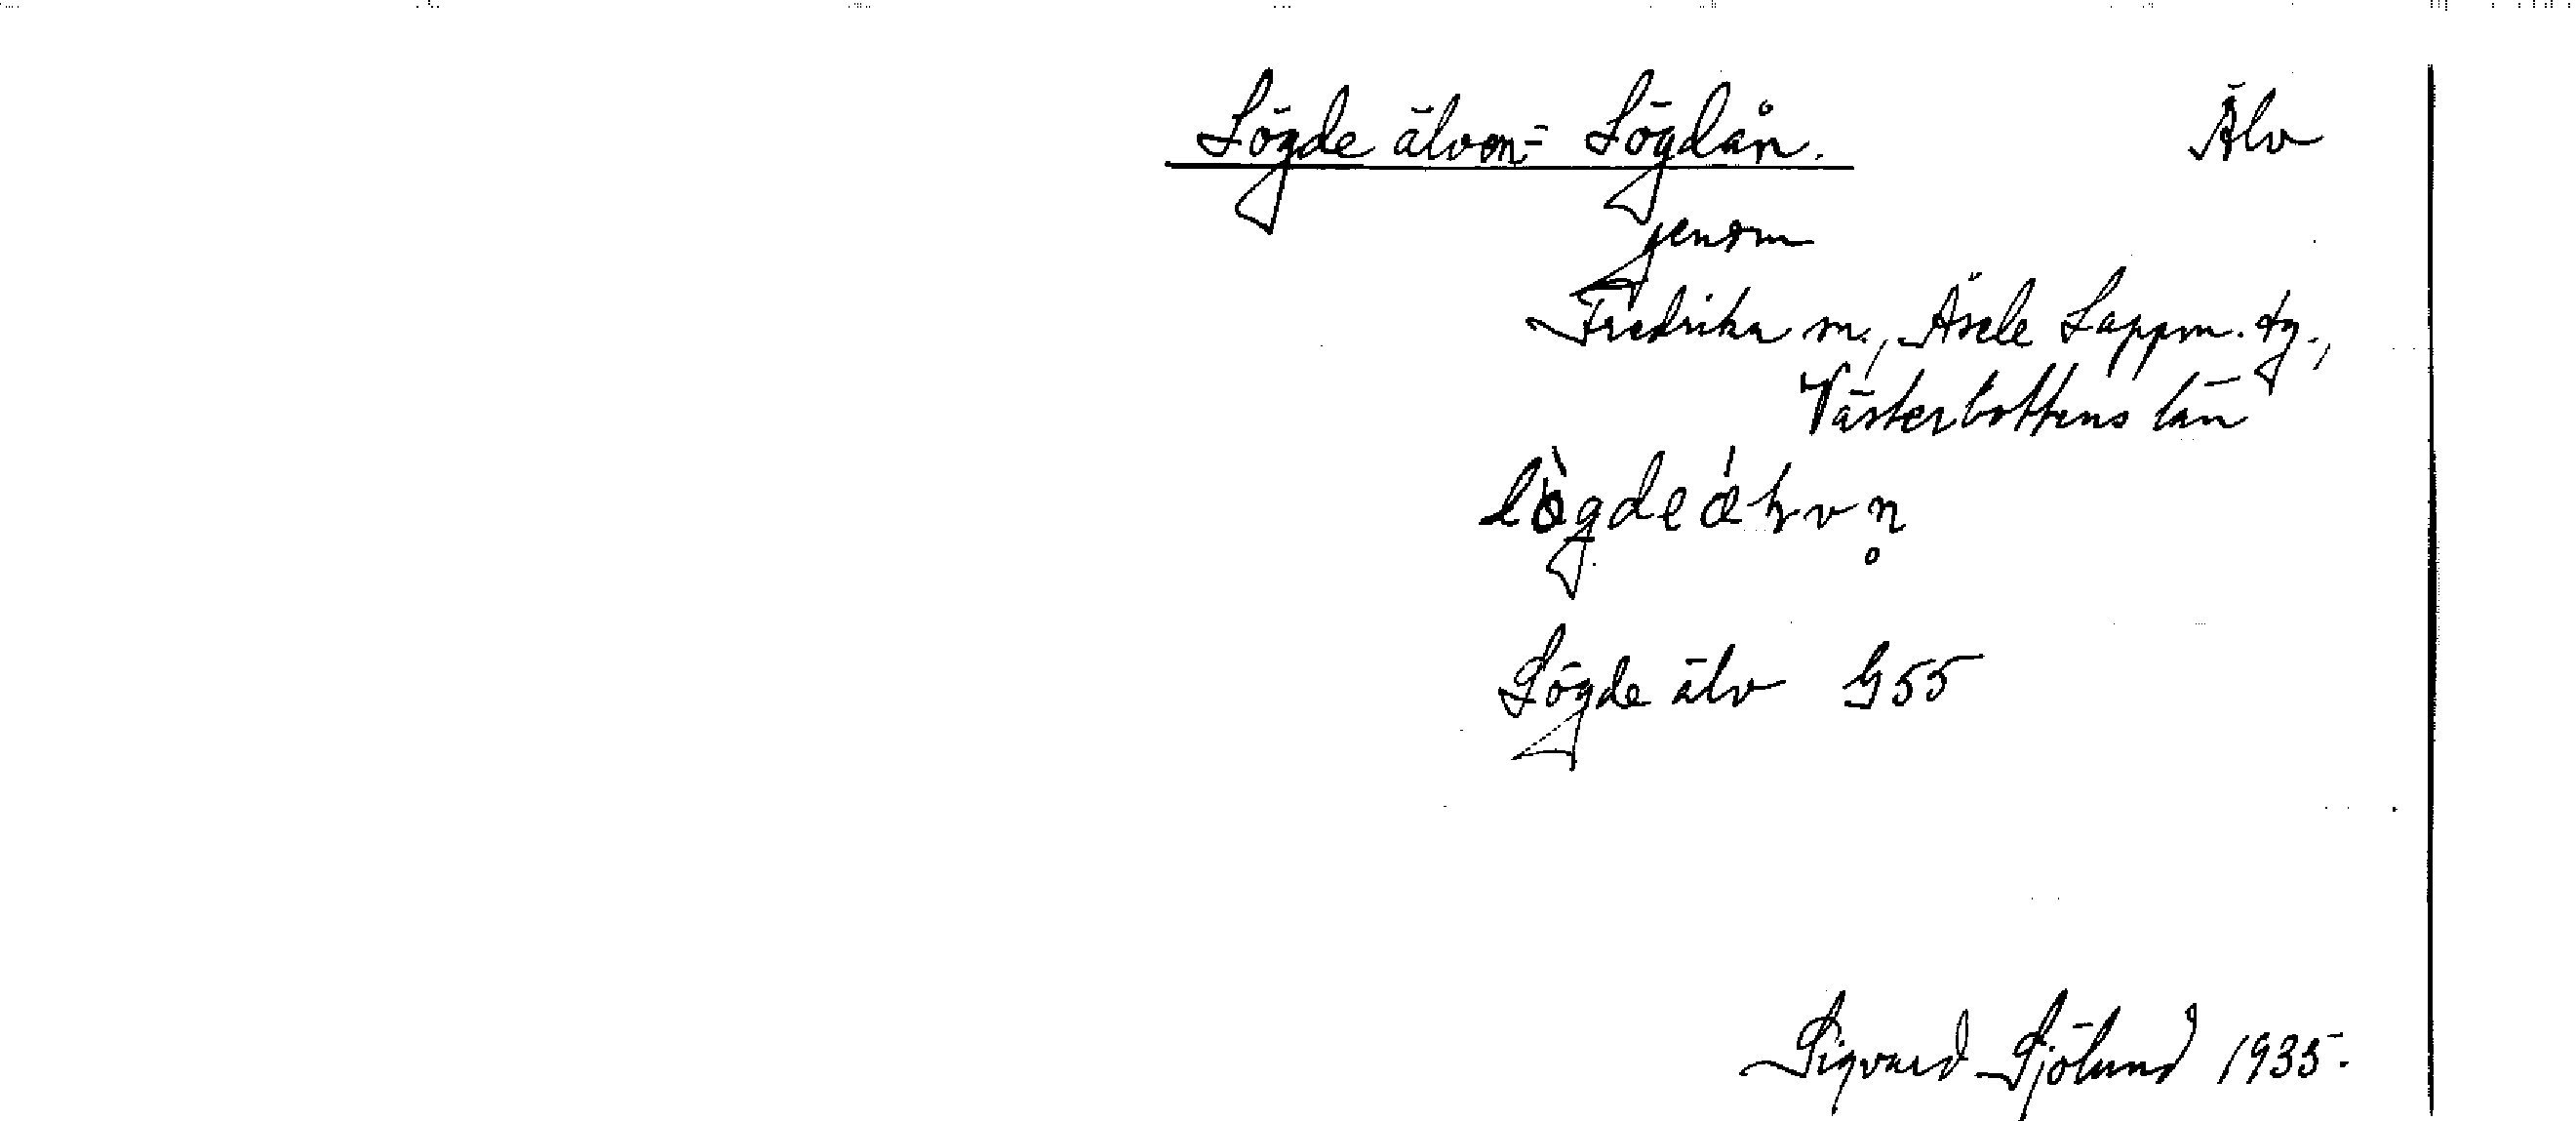 Lögde älven = Lögdån. Älv
genom
Fredrika sn., Åsele Lappm. tg.,
Västerbottens län
Lögde älv G55
Sigvard Sjölund 1935.